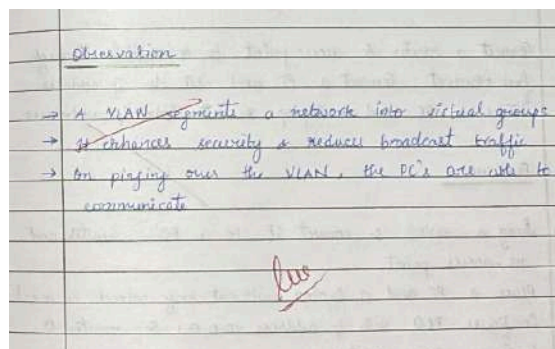 Observation
→ A VLAN segments a network into virtual groups
→ It enhances security & reduces broadcast traffic
→ On pinging over the VLAN, the PC's are able to
communicate